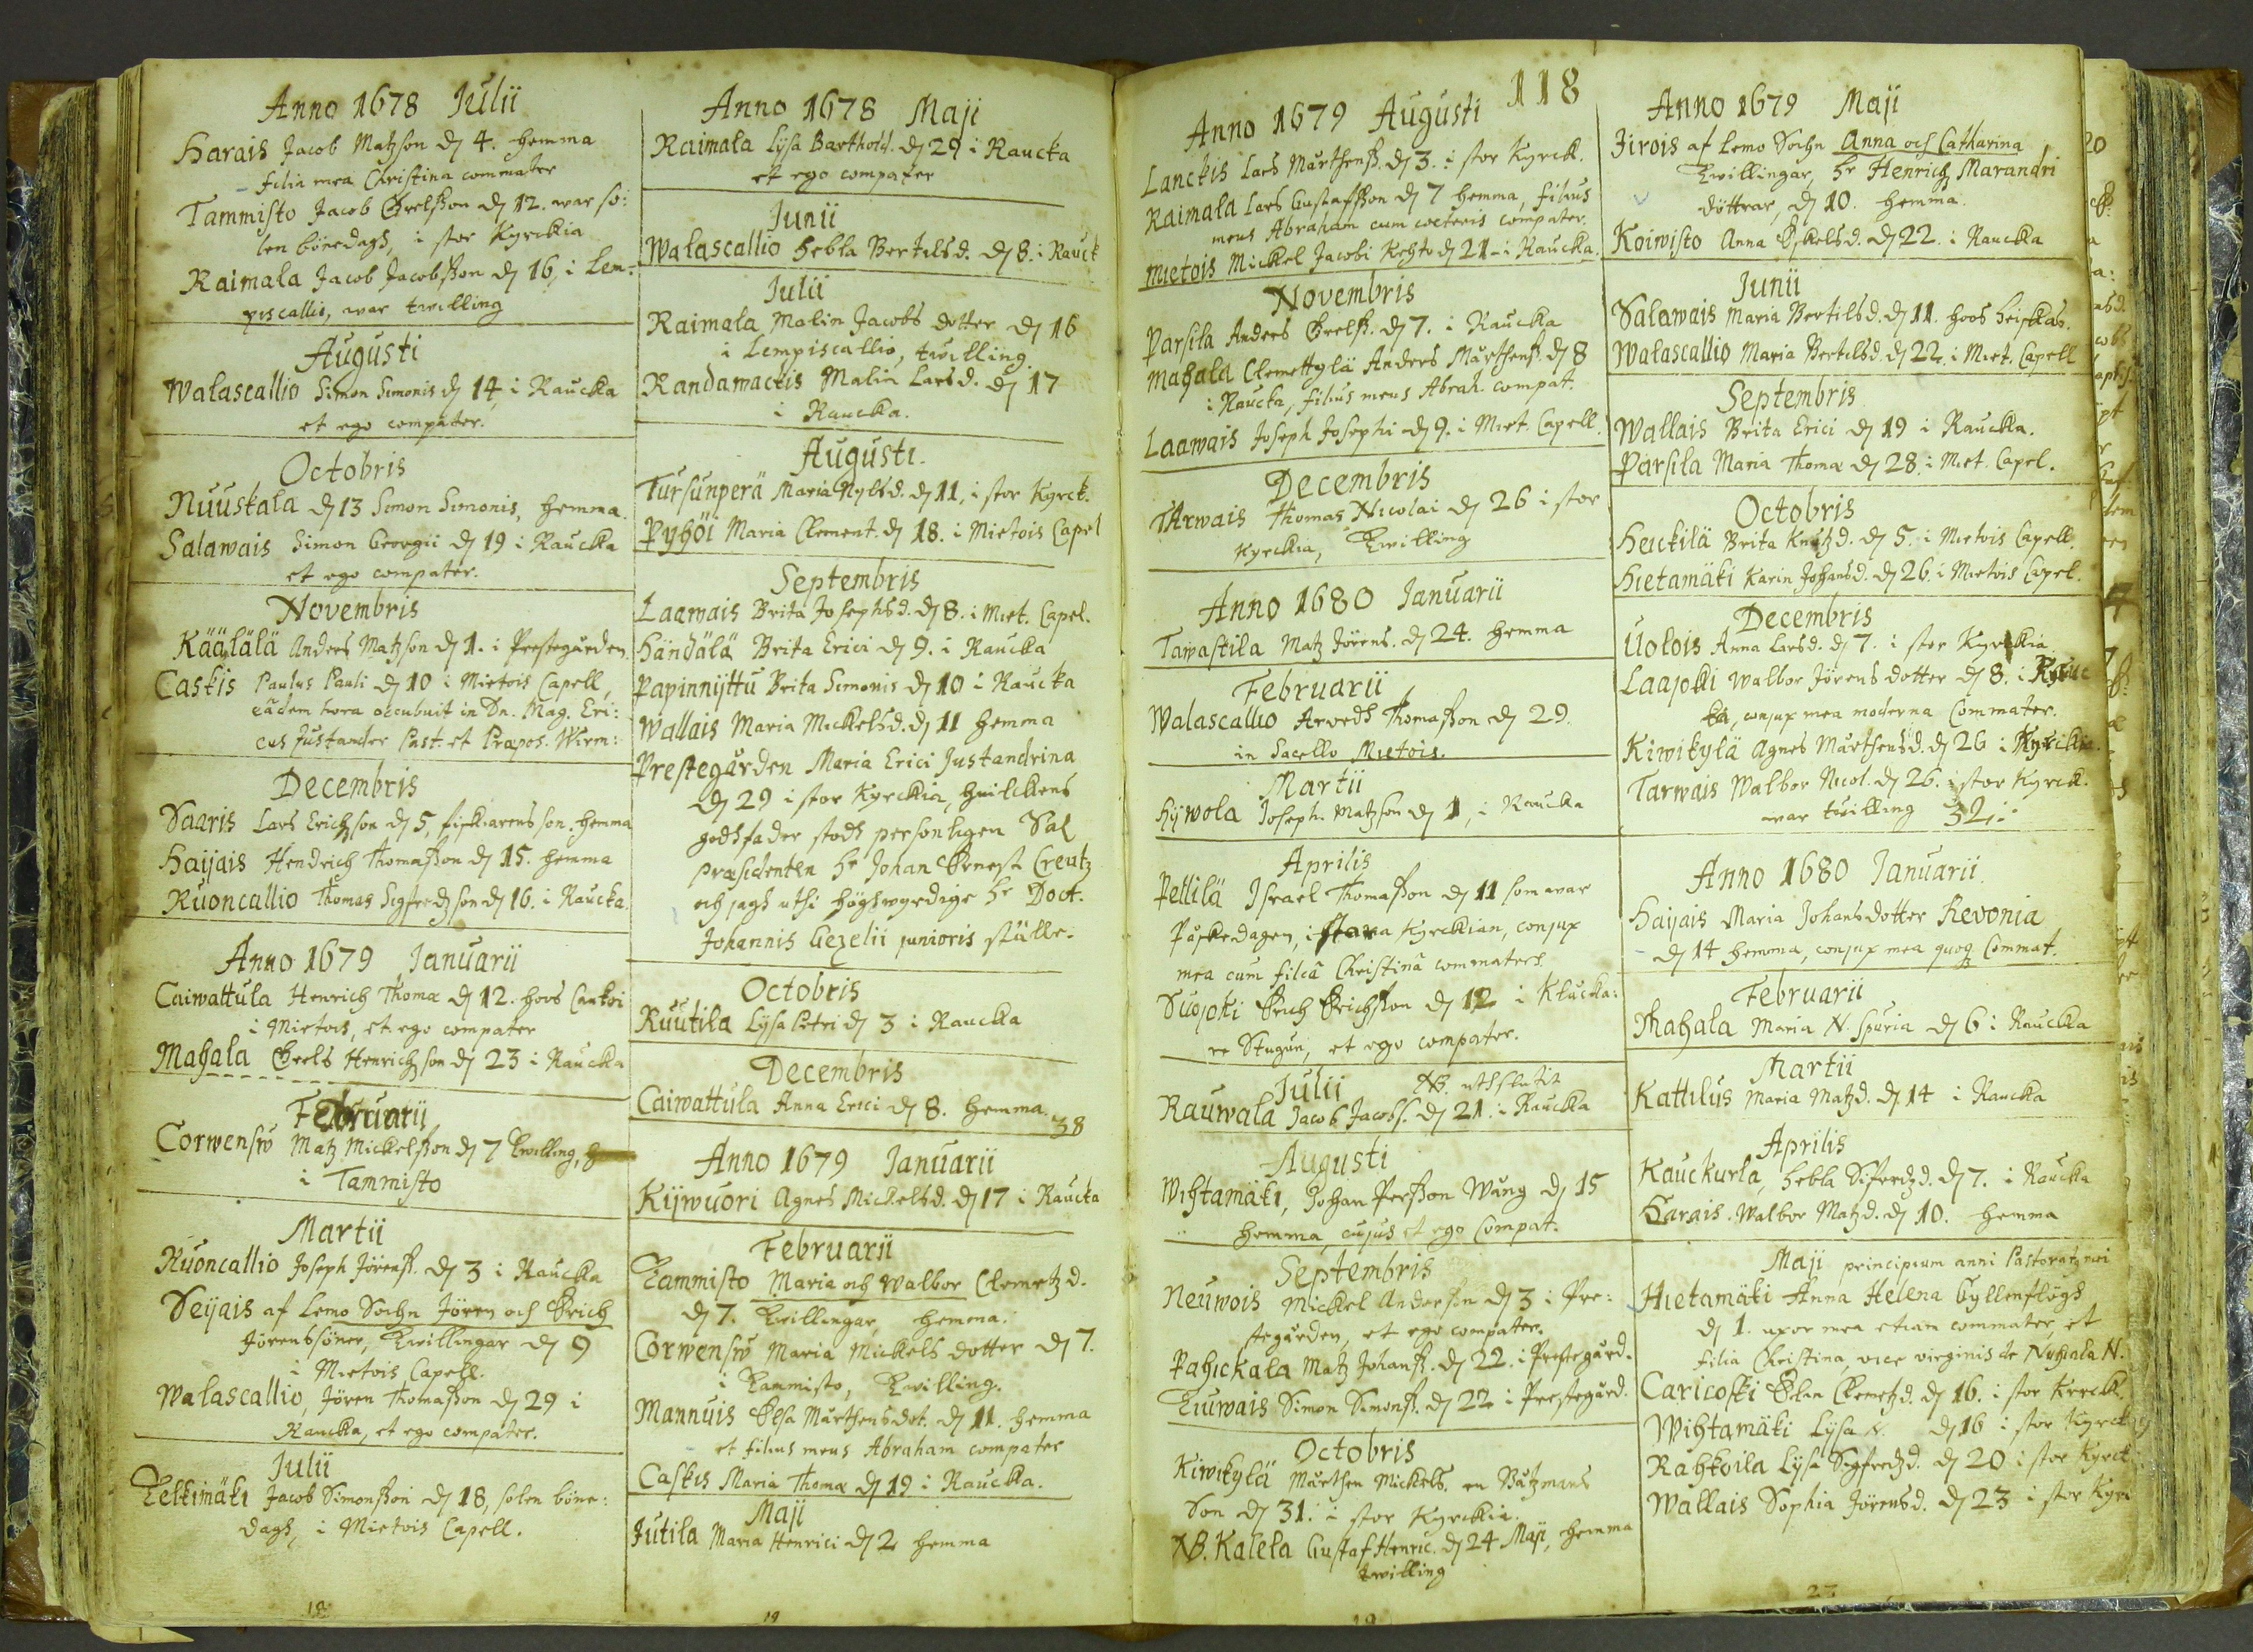 Anno 1678 Julii
Harais Jacob Matzson dȷ 4. hemma
filia mea Christina commater
Tammisto Jacob Grelsson dȷ 12. war so:
len bönedagh, i stor Kyrckia
Raimala Jacob Jacobsson dȷ 16, i Lem:
piscallio, war twilling
Augusti
Walascallio Simon Simonis dȷ 14, i Raucka
et ego compater.
Octobris
Nuuskala dȷ 13 Simon Simonis, hemma.
Salawais Simon Georgii dȷ 19 i Raucka
et ego compater.
Novembris
Käälälä Anders Matzson dȷ 1. i Prestegården.
Caskis Paulus Pauli dȷ 10 i Mietois Capell,
eadem hora occubuit in Dn. Mag. Eri:
cus Justander Past. et Præpos. Wirm:
Decembris
Saaris Lars Erichson dȷ 5, fiskiarens son. hemma
Haijais Hendrich Thomasson dȷ 15. hemma
Ruoncallio Thomas Sigfredzson dȷ 16. i Raucka.
Anno 1679 Januarii
Caiwattula Henrich Thomæ dȷ 12. hoos Cautoi
i Mietois, et ego compater
Mahala Greels Henrichson dȷ 23 i Raucka
Februarii
Corwensw Matz Mickelsson dȷ 7 Twilling,
i Tammisto
Martii
Ruoncallio Joseph Jörenss. dȷ 3 i Raucka
Seijais af Lemo Sochn Jören och Erich
Jörenssöner, Twillingar dȷ 9
i Mietois Capell.
Walascallio, Jören Thomasson dȷ 29 i
Raucka, et ego compater.
Julii
Telkimäki Jacob Simonsson dȷ 18, solen böne:
dagh, i Mietois Capell.
18
Anno 1678 Maji
Raimala Lysa Barthold. dȷ 29 i Raucka
et ego compater
Junii
Walascallio Hebla Bertilsd. dȷ 8. i Rauck
Julii
Raimala Malin Jacobs dotter dȷ 16
i Lempiscallio, twilling.
Randamackis Malin Larsd. dȷ 17
i Raucka.
Augusti.
Tursunperä Maria Nylsd. dȷ 11, i stor Kyrck.
Pyhöi Maria Clement. dȷ 18. i Mietois Capel
Septembris
Laawais Brita Josephsd. dȷ 8. i Miet. Capel.
Händälä Brita Erici dȷ 9. i Raucka
Papinnijttu Brita Simonis dȷ 10 i Raucka
Wallais Maria Mickelsd. dȷ 11 hemma
Prestegården Maria Erici Justandrina
dȷ 29 i stor Kyrckia, huilckens
godhfader stodh personligen Sal
præsidenten Hr Johan Ernest Creutz
och jagh uthi höghwyrdige Hr Doct.
Johannis Gezelii junioris ställe.
Octobris
Ruutila Lysa Petri dȷ 3 i Raucka
Decembris
Caiwattula Anna Erici dȷ 8. hemma.
38
Anno 1679 Januarii
Kijwuori Agnes Mickelsd. dȷ 17 i Raucka
Februarii
Tammisto Maria och Walbor Clemetzd.
dȷ 7. Twillingar, hemma.
Corwensw Maria Mickels dotter dȷ 7.
i Tammisto, Twilling.
Mannuis Elsa Mårthensdot. dȷ 11. hemma
et filius meus Abraham compater
Caskis Maria Thomæ dȷ 19 i Raucka.
Maji
Jutila Maria Henrici dȷ 2 hemma
19
118
Anno 1679 Augusti
Lanckis Lars Mårthenss. dȷ 3. i stor Kyrck.
Raimala Lars Gustafsson dȷ 7 hemma, filius
meus Abraham cum cæteris compater.
Mietois Mickel Jacobi Kehto dȷ 21 i Raucka.
Novembris
Parsila Anders Grelss. dȷ 7. i Raucka
Mahala Clemettylä Anders Mårthenss. dȷ 8
i Raucka, filius meus Abrah. compat.
Laawais Joseph Josephi dȷ 9. i Miet. Capell.
Decembris
Tarwais Thomas Nicolai dȷ 26 i stor
Kyrckia, Twilling
Anno 1680 Januarii
Tawastila Matz Jörens. dȷ 24. hemma
Februarii
Walascallio Arwedh Thomasson dȷ 29.
in Sacello Mietois.
Martii
Hijwola Joseph Matzson dȷ 1, i Raucka
Aprilis
Pettilä Israel Thomasson dȷ 11 som war
Påskedagen, i stora Kyrckian, conjux
mea cum filia Christina commaters
Suojoki Erich Erichsson dȷ 12 i Klucka:
re Stugun, et ego compater.
Julii NB. uthslutit
Rauwala Jacob Jacobs. dȷ 21. i Raucka
Augusti
Wihtamäki, Johan Persson Wång dȷ 15
hemma, cujus et ego Compat.
Septembris
Neuwois Mickel Anderson dȷ 3 i Pre:
stegården, et ego compater.
Pahickala Matz Johanss. dȷ 22. i Prestegård.
Tiuwais Simon Simonss. dȷ 22 i Prestegård.
Octobris
Kiwikylä Mårthen Mickels. en Båtzmans
Son dȷ 31. i stor Kyrckia.
NB. Kalela Gustaf Henric. dȷ 24 Maji, hemma
twilling
19
Anno 1679 Maji
Jirois af Lemo Sochn Anna och Catharina
Twillingar, Hr Henrich Marandri
döttrar, dȷ 10. hemma.
Koiwisto Anna Eskelsd. dȷ 22. i Raucka
Junii
Salawais Maria Bertilsd. dȷ 11. hoos Heiskas.
Walascallio Maria Bertilsd. dȷ 22. i Miet. Capell
Septembris
Wallais Brita Erici dȷ 19 i Raucka.
Parsila Maria Thomæ dȷ 28. i Miet. Capel.
Octobris
Heickilä Brita Knutzd. dȷ 5. i Mietois Capell.
Hietamäki Karin Johansd. dȷ 26. i Mietois Capel.
Decembris
Uolois Anna Larsd. dȷ 7. i stor Kyrckia
Laajoki Walbor Jörens dotter dȷ 8. i Rauc
ka, conjux mea moderna Commater.
Kiwikylä Agnes Mårthensd. dȷ 26 i Kyrckia.
Tarwais Walbor Nicol. dȷ 26. i stor Kyrck.
war twilling 32.
Anno 1680 Januarii.
Haijais Maria Johansdotter Revonia
dȷ 14 hemma, conjux mea quoq Commat.
Februarii
Mahala Maria N. spuria dȷ 6 i Raucka
Martii
Kattilus Maria Matzd. dȷ 14 i Raucka
Aprilis
Kauckurla, Hebla Siferdzd. dȷ 7. i Raucka
Harais. Walbor Matzd. dȷ 10. hemma
Maji principium anni Pastoratus mei
Hietamäki Anna Helena Gyllenflögh
dȷ 1. uxor mea etiam commater, et
filia Christina vice virginis de Nyhiala N.
Caricoski Elin Clemetzd. dȷ 16. i stor Kyrck.
Wihtamäki Lysa N. dȷ 16 i stor Kyrck
Rahkoila Lysa Sigfredzd. dȷ 20 i stor Kyrck
Wallais Sophia Jörensd. dȷ 23 i stor Kyrc
27